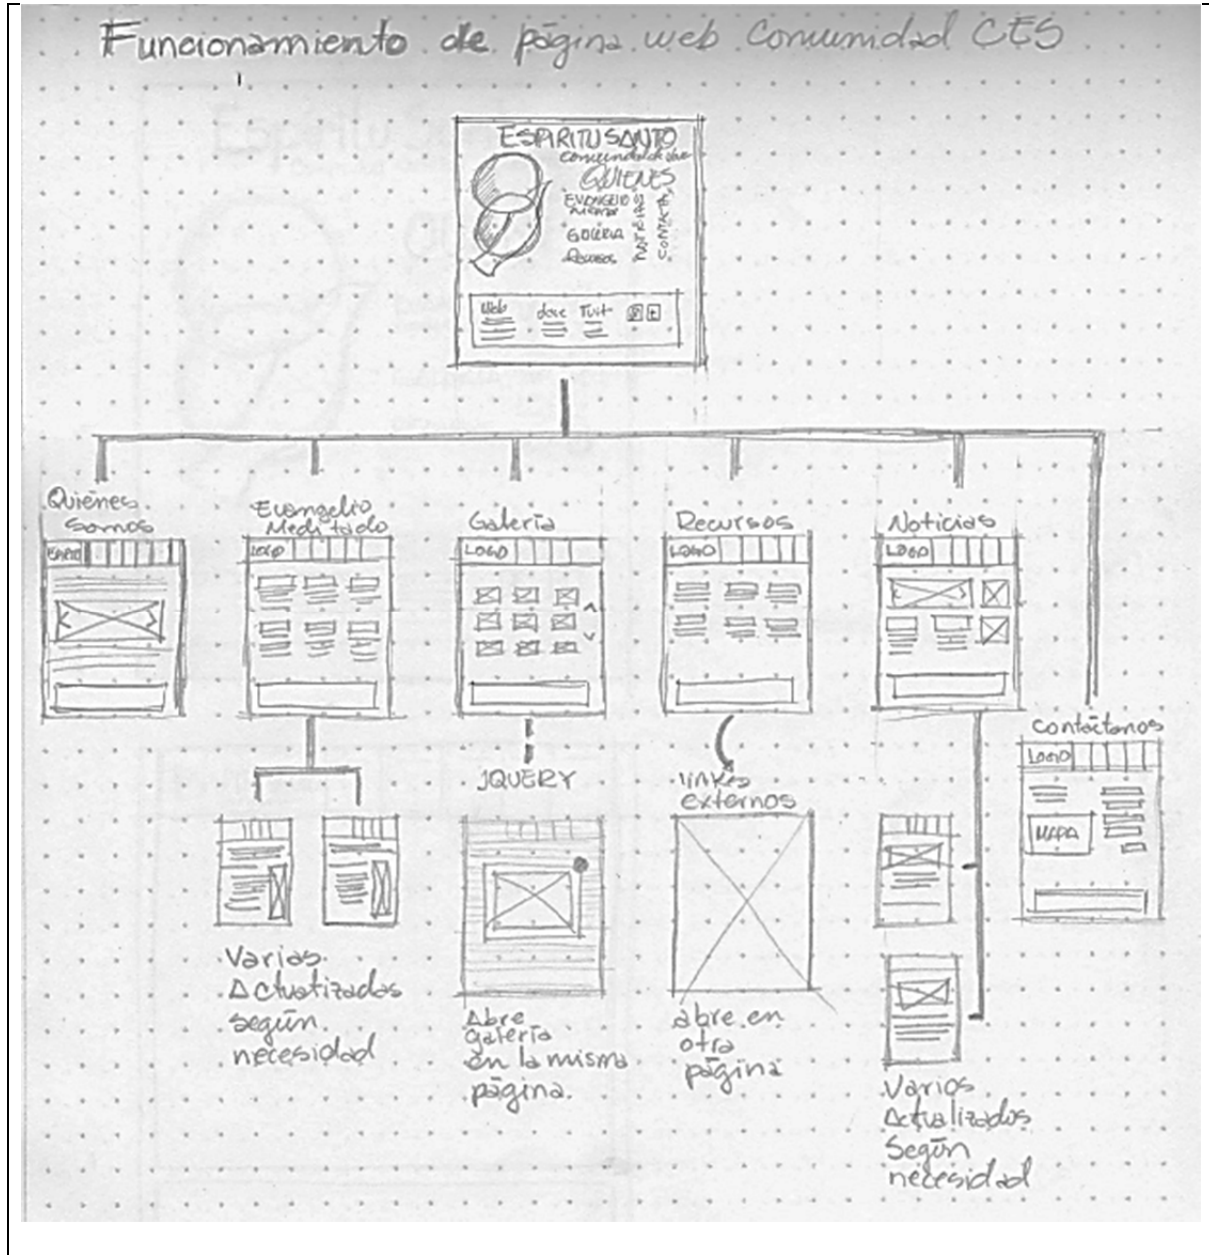 Funcionamiento de página web Comunidad CES
ESPIRITU SANTO
comunidad de
QUIENES
EVANGELIO
GALERIA
Recursos
NOTICIAS
CONTACTA
Web
Tuit
Quiénes
Somos
Evangelio
Meditado
LOGO
Galería
LOGO
Recursos
LOGO
Noticias
LOGO
Contáctanos
LOGO
MAPA
JQUERY
links
externos
Varias
Actualizadas
según
necesidad
Abre
galería
en la misma
página.
abre en
otra
página
Varios
Actualizados
Según
necesidad